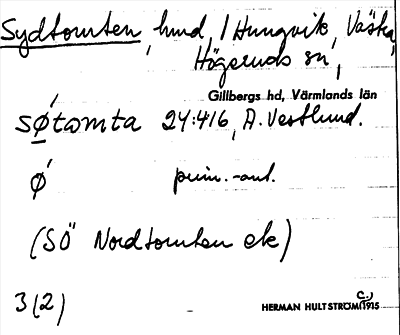 Sydtomten, hmd, / Hungvik, Västra,
Högseruds sn,
Gillbergs hd, Värmlands län
sǿtomta 24:416, A. Vestlund.
ǿ prim.-ant.
(SÖ Nordtomten etc)
3(2)
HERMAN HULTSTRÖM (C.) 1915